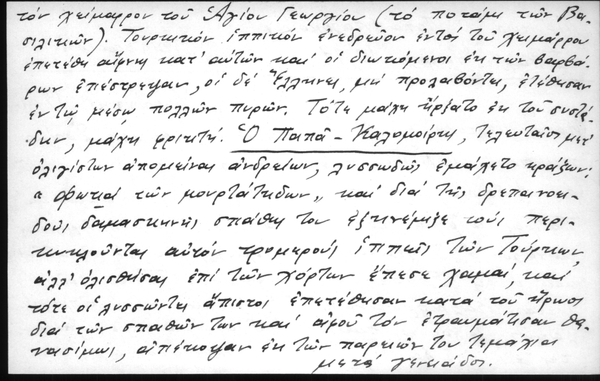 τόν χείμαρρον τοῦ Ἁγίου Γεωργίου (τό ποτάμι τῶν Βα-
σιλικῶν). Τουρκικόν ἱππικόν ἐνεδρεῦον ἐντός τοῦ χειμάρρου
ἐπετέθη αἴφνης κατ' αὐτῶν καί οἱ διωκόμενοι ἐκ τῶν βαρβά-
ρων ἐπέστρεψαν, οἱ δέ Ἕλληνες, μή προλαβόντες, ἐτέθησαν
ἐν τῷ μέσῳ πολλῶν πυρῶν. Τότε μάχη ἤρξατο ἐκ τοῦ συστά-
δην, μάχη φρικτή. Ὁ Παπᾶ-Καλομοίρης, τελευταῖος μετ'
ὀλιγίστων ἀπομείνας ἀνδρείων, λυσσωδῶς ἐμάχετο κράζων:
"Φωτιά τῶν μουρτάτηδων" καί διά τῆς δρεπανοει-
δοῦς δαμασκηνῆς σπάθης του ἐξηνέμιζε τούς περι-
κυκλοῦντας αὐτόν τρομερούς ἱππεῖς τῶν Τούρκων,
ἀλλ' ὀλισθήσας ἐπί τῶν χόρτων ἔπεσε χαμαί, καί
τότε οἱ λυσσῶντες ἄπιστοι ἐπετέθησαν κατά τοῦ ἥρωος
διά τῶν σπαθῶν των καί ἀφοῦ τόν ἐτραυμάτισαν θα-
νασίμως, ἀπέκοψαν ἐκ τῶν παρειῶν του τεμάχια
μετά γενειάδος.